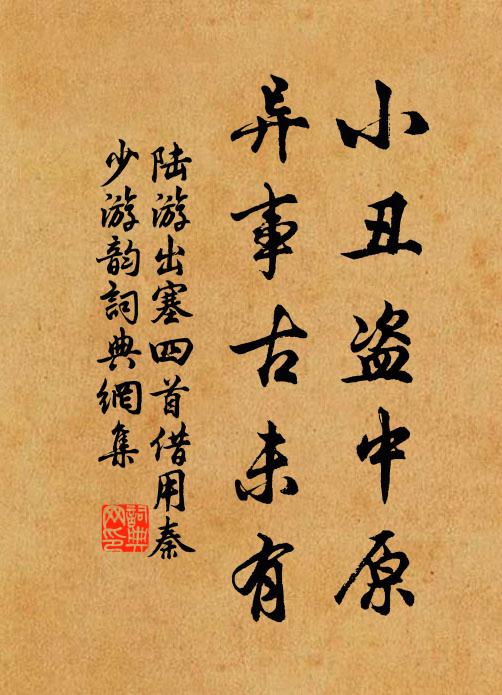 小丑盗中原
异事古未有
陆游出塞四首借用秦
少游韵詞典網集